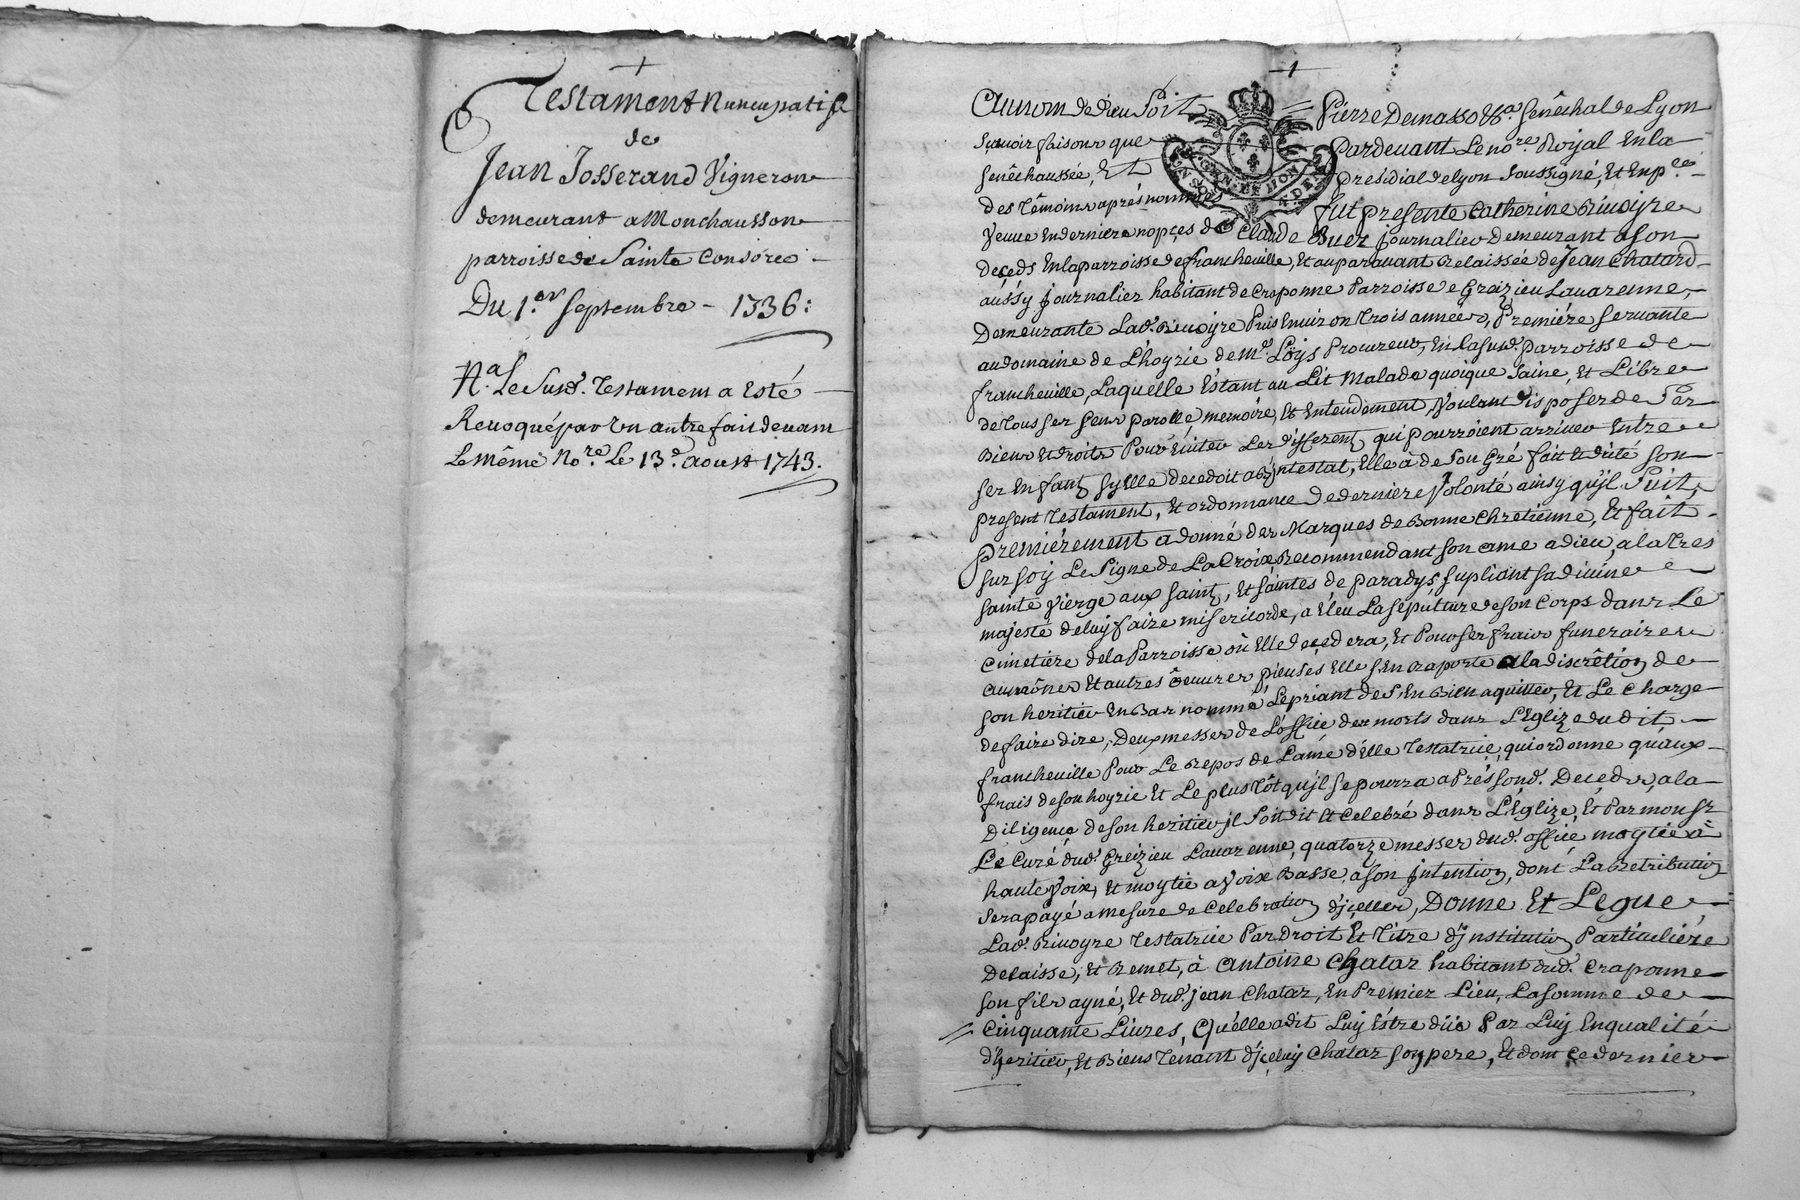 Testament nuncupatif
de
Jean Josserand Vigneron
demeurant a Monchausson
parroisse de Sainte Consorce
Du 1.er Septembre - 1736:
N.a Le Susd. Testament a Esté
Revoqué par Un autre fait devant
Le même No.re Le 13.e aoust 1743.
Au nom de dieu soit
Pierre Demasso &.a Senêchal de Lyon
Sçavoir faisons que
Pardevant Le no.re Royal En la
Senêchaussée, Et
Presidial de Lyon Soussigné, Et En p.ce
GEN. DE LYON
des têmoins aprés nommés
fut presente Catherine Rivoyre
Veuve En derniere nopçes de Claude Buer journalier demeurant a son
deçeds En la parroisse de francheville, Et auparavant Relaissée de Jean Chatard
aussy journalier habitant de Craponne Parroisse de Greizieu Lavarenne,
Demeurante Lad. Rivoyre Puis Environ trois années, Premiére Servante
au domaine de L'hoyrie de m.e Loÿs Procureur, En lasusd. parroisse de
francheville, Laquelle Éstant au Lit Malade quoique Saine, Et Libre
de tous ses Sens parolle memoire, Et Entendement, Voulant disposer de Ses
Biens Et droits Pour Eviter Les differents qui pourroient arriver Entre
ses Enfants sy Elle decedoit abjntestat, Elle a de Son Gré fait Et dicté son
present testament, Et ordonnance de derniere Volonté ainsy qu'jl Suit,
Premiérement a donné des Marques de Bonne Chretiénne, Et fait
sur soÿ Le Signe de La Croix Recommendant son ame a dieu, a la tres
sainte Vierge aux saints, Et saintes de paradys, supliant sa divine
majesté de luy faire misericorde, a Éleu La sépulture de son Corps dans Le
Cimetiére de la Parroisse où Elle deçedera, Et Pour ses fraix funeraires
aumônes Et autres ôeuvres pieuses Elle s'En raporte a la discrêtion de
son heritier En Bas nommé Le priant de s'En Bien aquitter, Et Le Charge
de faire dire, Deux messes de L'office des morts dans L'Eglize du dit
francheville Pour Le Repos de L'ame d'Elle Testatrice, qui ordonne qu'aux
frais de son hoyrie Et Le plus tôt qu'jl se pourra aPrés sond. Deceds, a la
diligence de son heritier jl Soit dit Et Celebré dans L'Eglize, Et Par mons.r
Le Curé dud. Greizieu Lavarenne, quatorze messes dud. office moytié à
haute Voix, Et moytié a Voix Basse a son jntention, dont La Retribution
sera payé a mesure de Celebration d'jcelles, Donne Et Legue
Lad. Rivoyre Testatrice Par droit Et Titre d'jnstitution Particuliére
delaisse, Et Remet, à Antoine Chatar habitant dud. Craponne
son fils ayné, Et dud. jean Chatar, En Premier Lieu, La somme de
Cinquante Livres, Qu'elle a dit Luy Éstre düe Par Luy En qualité
d'heritier, Et Biens Tenant d'jceluy Chatar son pere, Et dont ce dernier